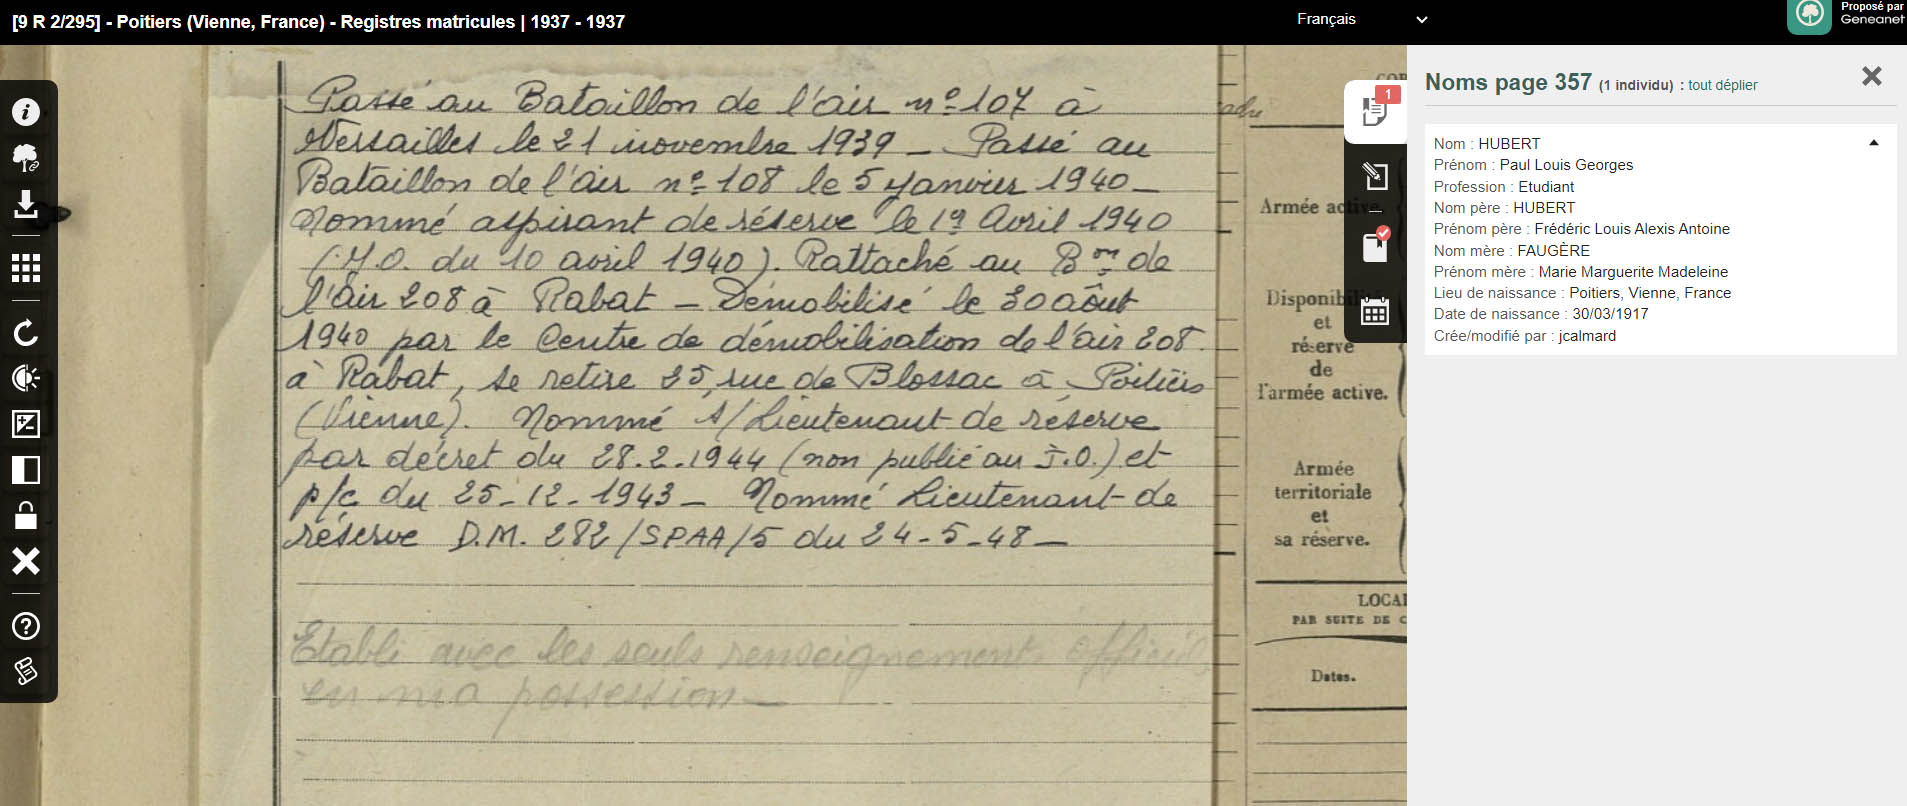 [9 R 2/295] - Poitiers (Vienne, France) - Registres matricules | 1937 - 1937
Français
Proposé par
Geneanet
Passé au Bataillon de l'air nº 107 à
Versailles le 21 novembre 1939 _ Passé au
Bataillon de l'air nº 108 le 5 Janvier 1940_
Nommé aspirant de réserve le 1er Avril 1940
(J.O. du 10 avril 1940). Rattaché au Bon de
l'air 208 à Rabat _ Démobilisé le 30 août
1940 par le Centre de démobilisation de l'air 208.
à Rabat, se retire 25, rue de Blossac à Poitiers
(Vienne). Nommé s/Lieutenant de réserve
par décret du 28.2.1944 (non publié au J.O.) et
p/c du 25-12-1943_ Nommé Lieutenant de
réserve D.M. 282/SPAA/5 du 24-5-48_
Etabli avec les seuls renseignements officiels
en ma possession_
Armée active.
Disponibilité
et
réserve
de
l'armée active.
Armée
territoriale
et
sa réserve.
LOCAL
PAR SUITE DE C
Dates.
1
Noms page 357 (1 individu) : tout déplier
Nom : HUBERT
Prénom : Paul Louis Georges
Profession : Etudiant
Nom père : HUBERT
Prénom père : Frédéric Louis Alexis Antoine
Nom mère : FAUGÈRE
Prénom mère : Marie Marguerite Madeleine
Lieu de naissance : Poitiers, Vienne, France
Date de naissance : 30/03/1917
Crée/modifié par : jcalmard